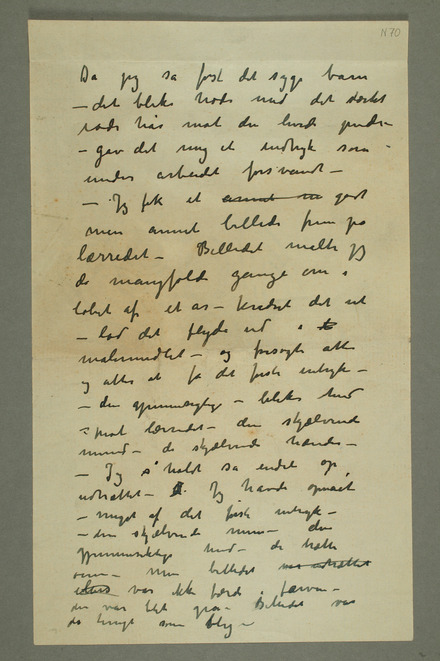 N 70
Da jeg så først det syge barn
– det bleke hode med det stærkt
røde hår mot den hvide pude –
– gav det mig et indtryk som
under arbeidet forsvandt –
– Jeg fik et godt
men annet billede frem på
lærredet – Billedet malte jeg
da mangfoldi gange om i
løbet af et år – kradset det ut
– lod det flyde ud i
malermidlet – og forsøgte atter
og atter at få det første indtryk –
– den gjennemsigtige – bleke hud
mot lærredet – den skjælvende
mund – de skjælvende hænder –
– Jeg holdt så endel op,
udmattet – Jeg havde opnået
– meget af det første indtryk –
– den skjælvende mun – den
gjennemsiktige hud – de trætte
øine – men billedet
var ikke færdi i farven –
den var bligt grå – Billedet var
da tungt som bly –